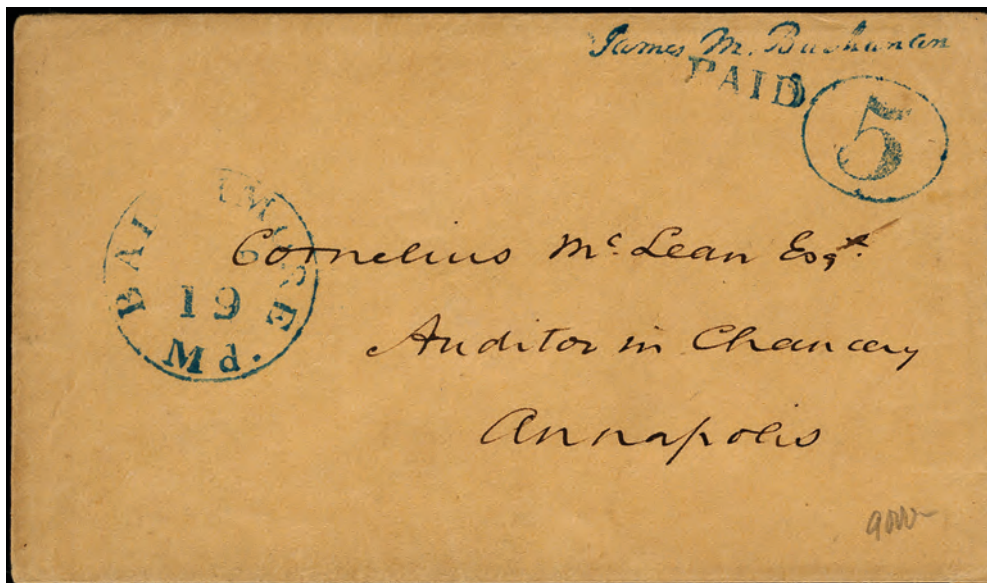 James M. Buchanan
PAID
5
BALTIMORE
19
Md.
Cornelius Mc Lean Esqr.
Auditor in Chancery
Annapolis